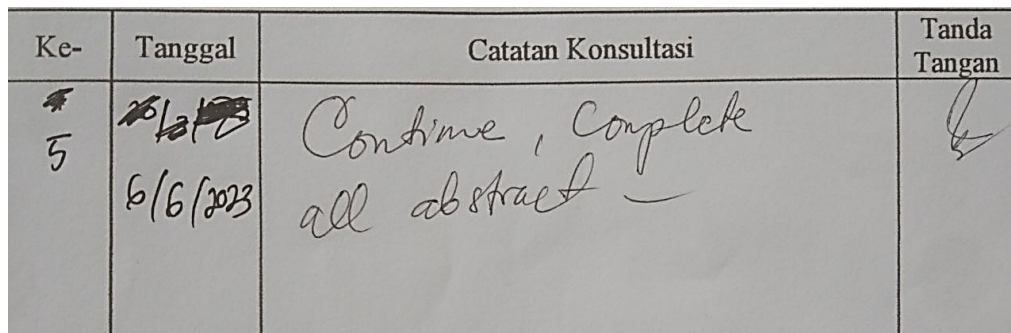 Ke- Tanggal Catatan Konsultasi Tanda Tangan
5 Continue, Complete
6/6/2023 all abstract –